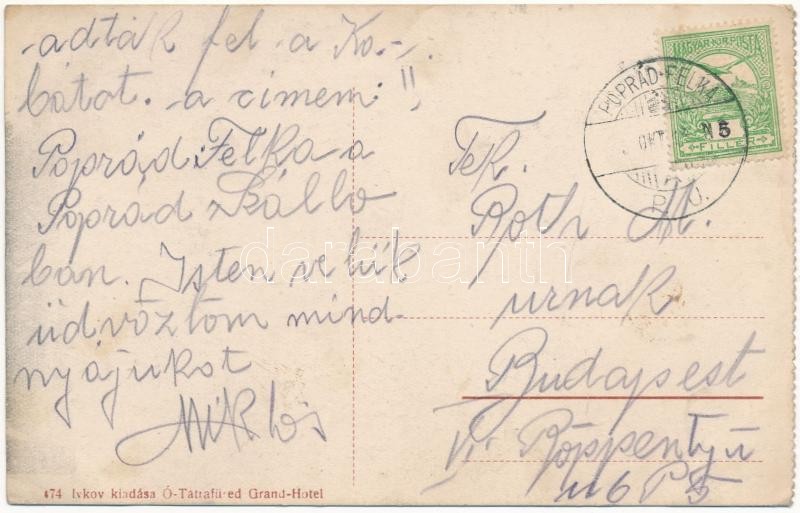 adták fel a Ko-
bátot. a cimem:!!
Poprád Felka a
Poprád Szálló
ban. Isten velük
üdvöztöm mind-
nyájukat
Miklós
474 Ivkov kiadása Ó-Tátrafüred Grand-Hotel
MAGYAR KIR. POSTA
5
FILLÉR
POPRÁD-FELKA
OKT
P. U.
Tek.
Roth M.
urnak
Budapest
VI. Röppentyü
u 6
darabanth.com